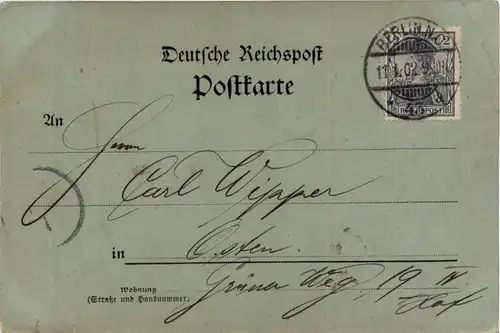 BERLIN N.O.
Deutsche Reichspost
Postkarte
REICHSPOST
An
Herrn
Carl Wipper
in
Osten.
Wohnung
Grüner Weg 19 IV
(Straße und Hausnummer)
Hof